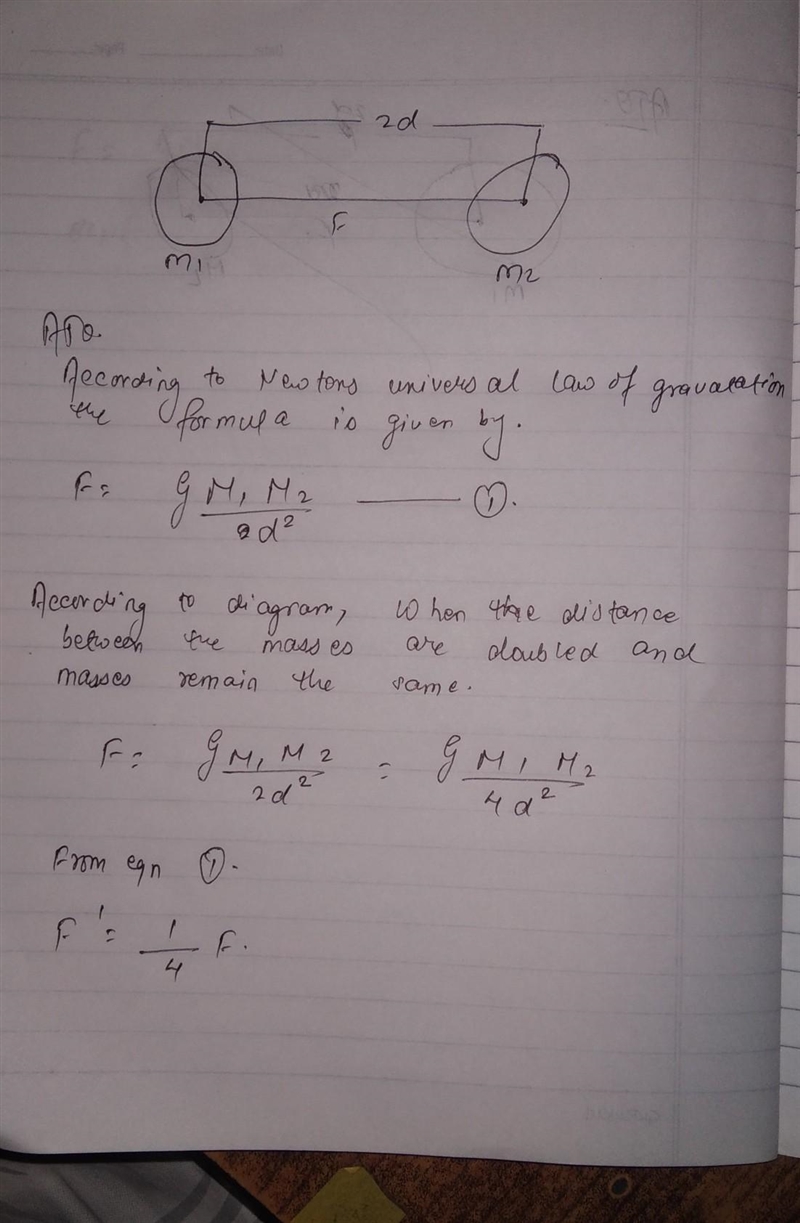 2d
F
M1
M2
ATQ.
According to Newtons universal law of gravatation
the formula is given by.
F= G M1 M2 / 2d² —— ①.
According to diagram, When the distance
between the masses are doubled and
masses remain the same.
F= G M1 M2 / 2d² = G M1 M2 / 4d²
From eqn ①.
F' = 1/4 F.